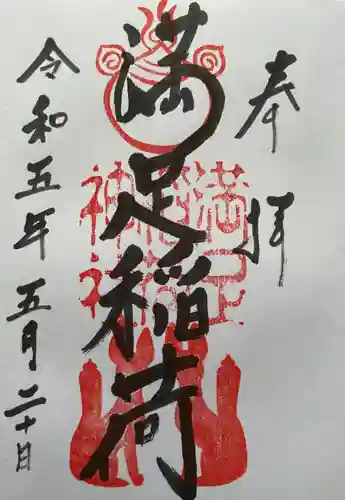 奉拝
満足稲荷
令和五年五月二十日
満足稲荷神社